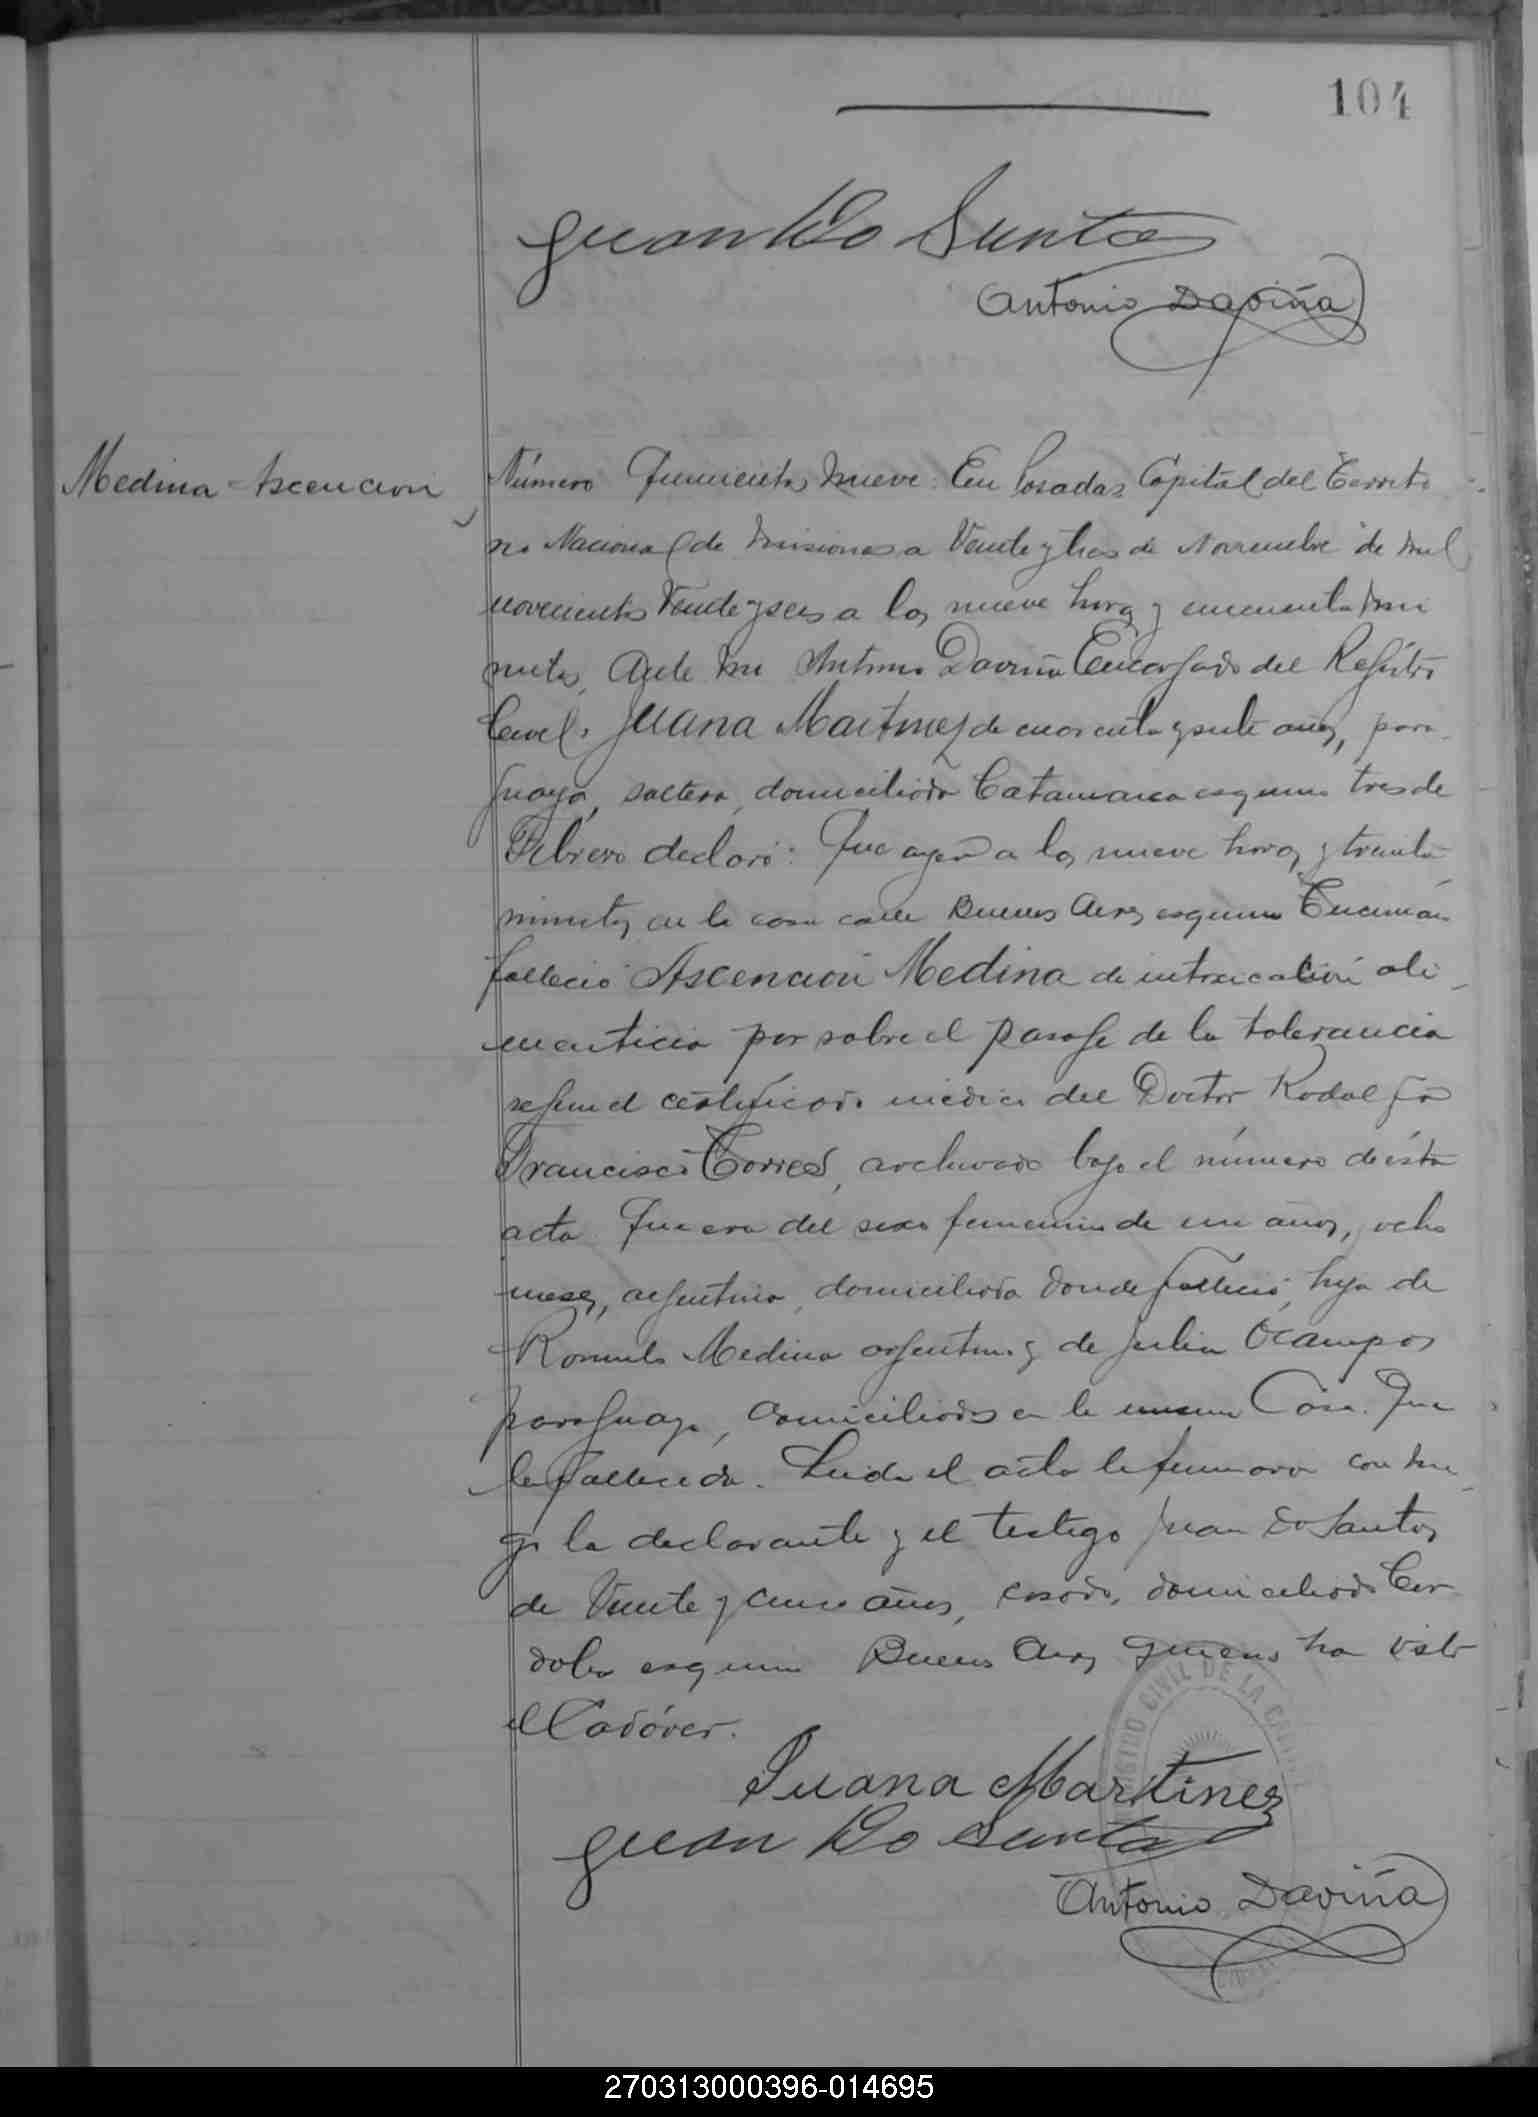 104
Juan Do Santos
Antonio Daviña
Medina - Ascencion
Número Quinientos nueve. En Posadas, Capital del Territo
rio Nacional de Misiones a Veinte y tres de Noviembre de mil
novecientos Veinte y seis a las nueve horas y cincuenta mi
nutos, Ante mi Antonio Daviña Encargado del Registro
Civil, Juana Martinez de cuarenta y siete años, para
guaya, soltera, domiciliada Catamarca esquina tres de
Febrero declaró: Que ayer a las nueve horas y treinta
minutos en la casa calle Buenos Aires esquina Tucumán
falleció Ascención Medina de intoxicación ali
menticia por sobre el pasaje de la tolerancia
según el certificado médico del Doctor Rodolfo
Francisco Torres, archivado bajo el número de ésta
acta. Que era del sexo femenino de un años, ocho
meses, argentina, domiciliada donde falleció, hija de
Romulo Medina argentino y de Julia Ocampos
paraguaya, domiciliados en la misma Casa. Que
la fallecida. Leida el acta la firmaron con mi
go la declarante y el testigo Juan Do Santos,
de Veinte y cinco años, casado, domiciliado Cor
doba esquina Buenos Aires quienes ha visto
el Cadáver.
Juana Martinez
Juan Do Santos
Antonio Daviña
REGISTRO CIVIL DE LA
270313000396-014695